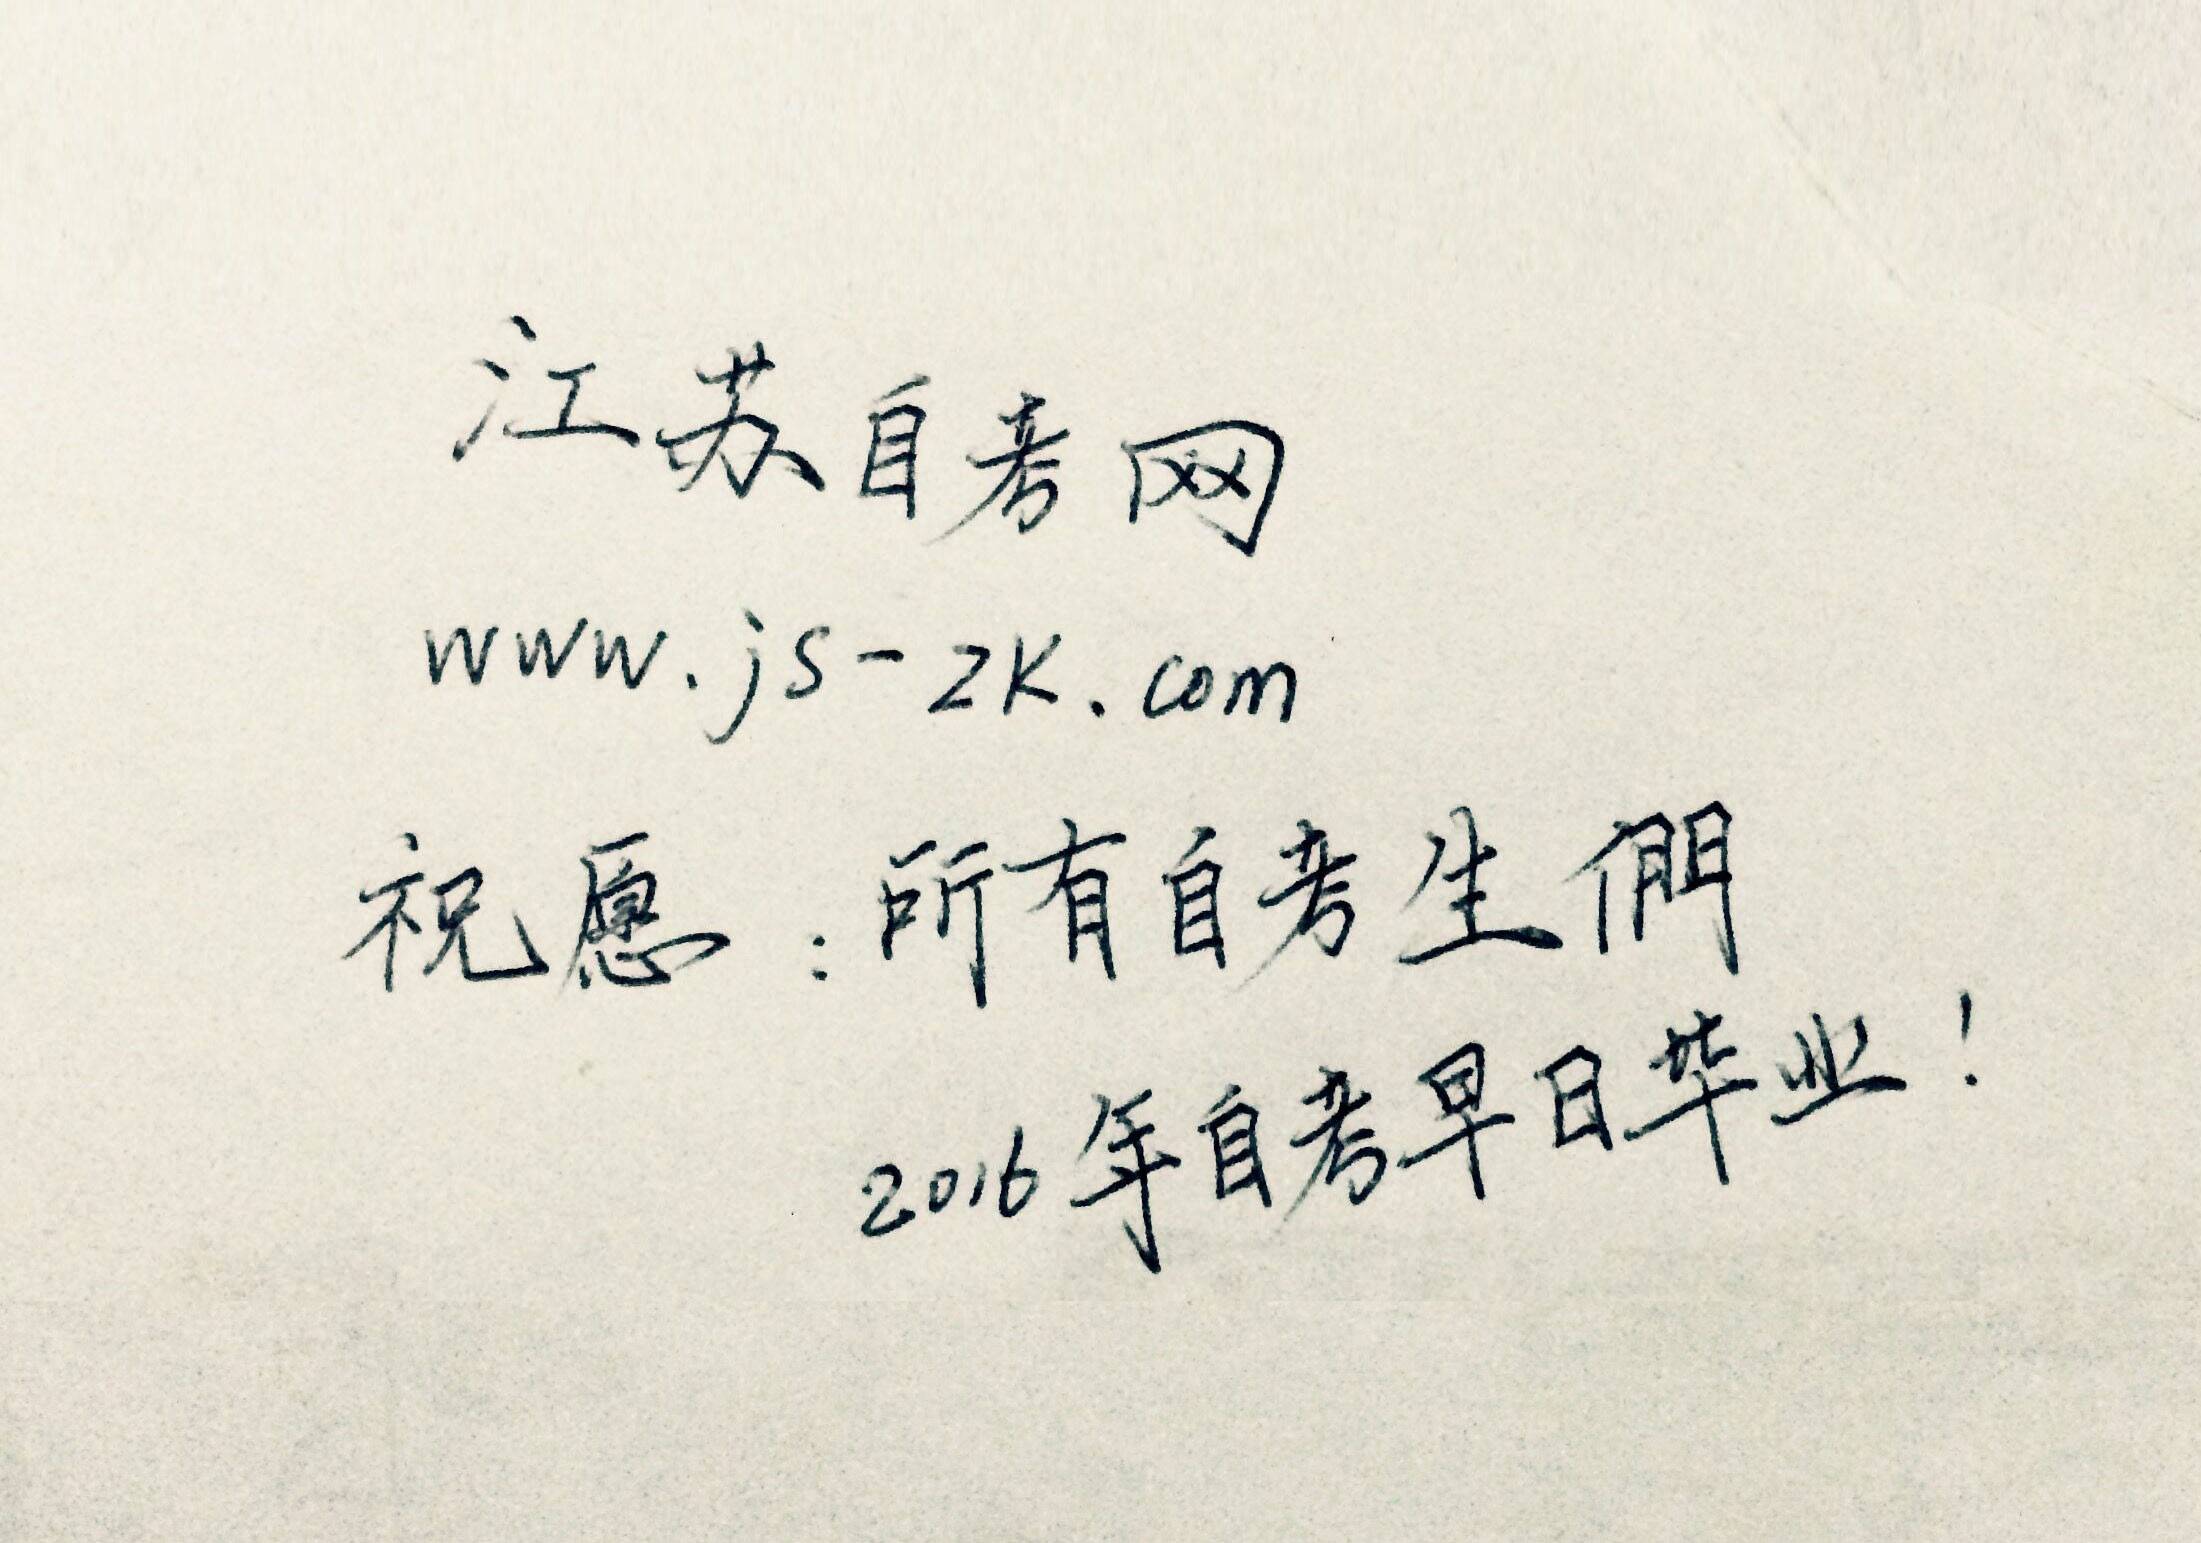 江苏自考网
www.js-zk.com
祝愿:所有自考生們
2016年自考早日毕业!